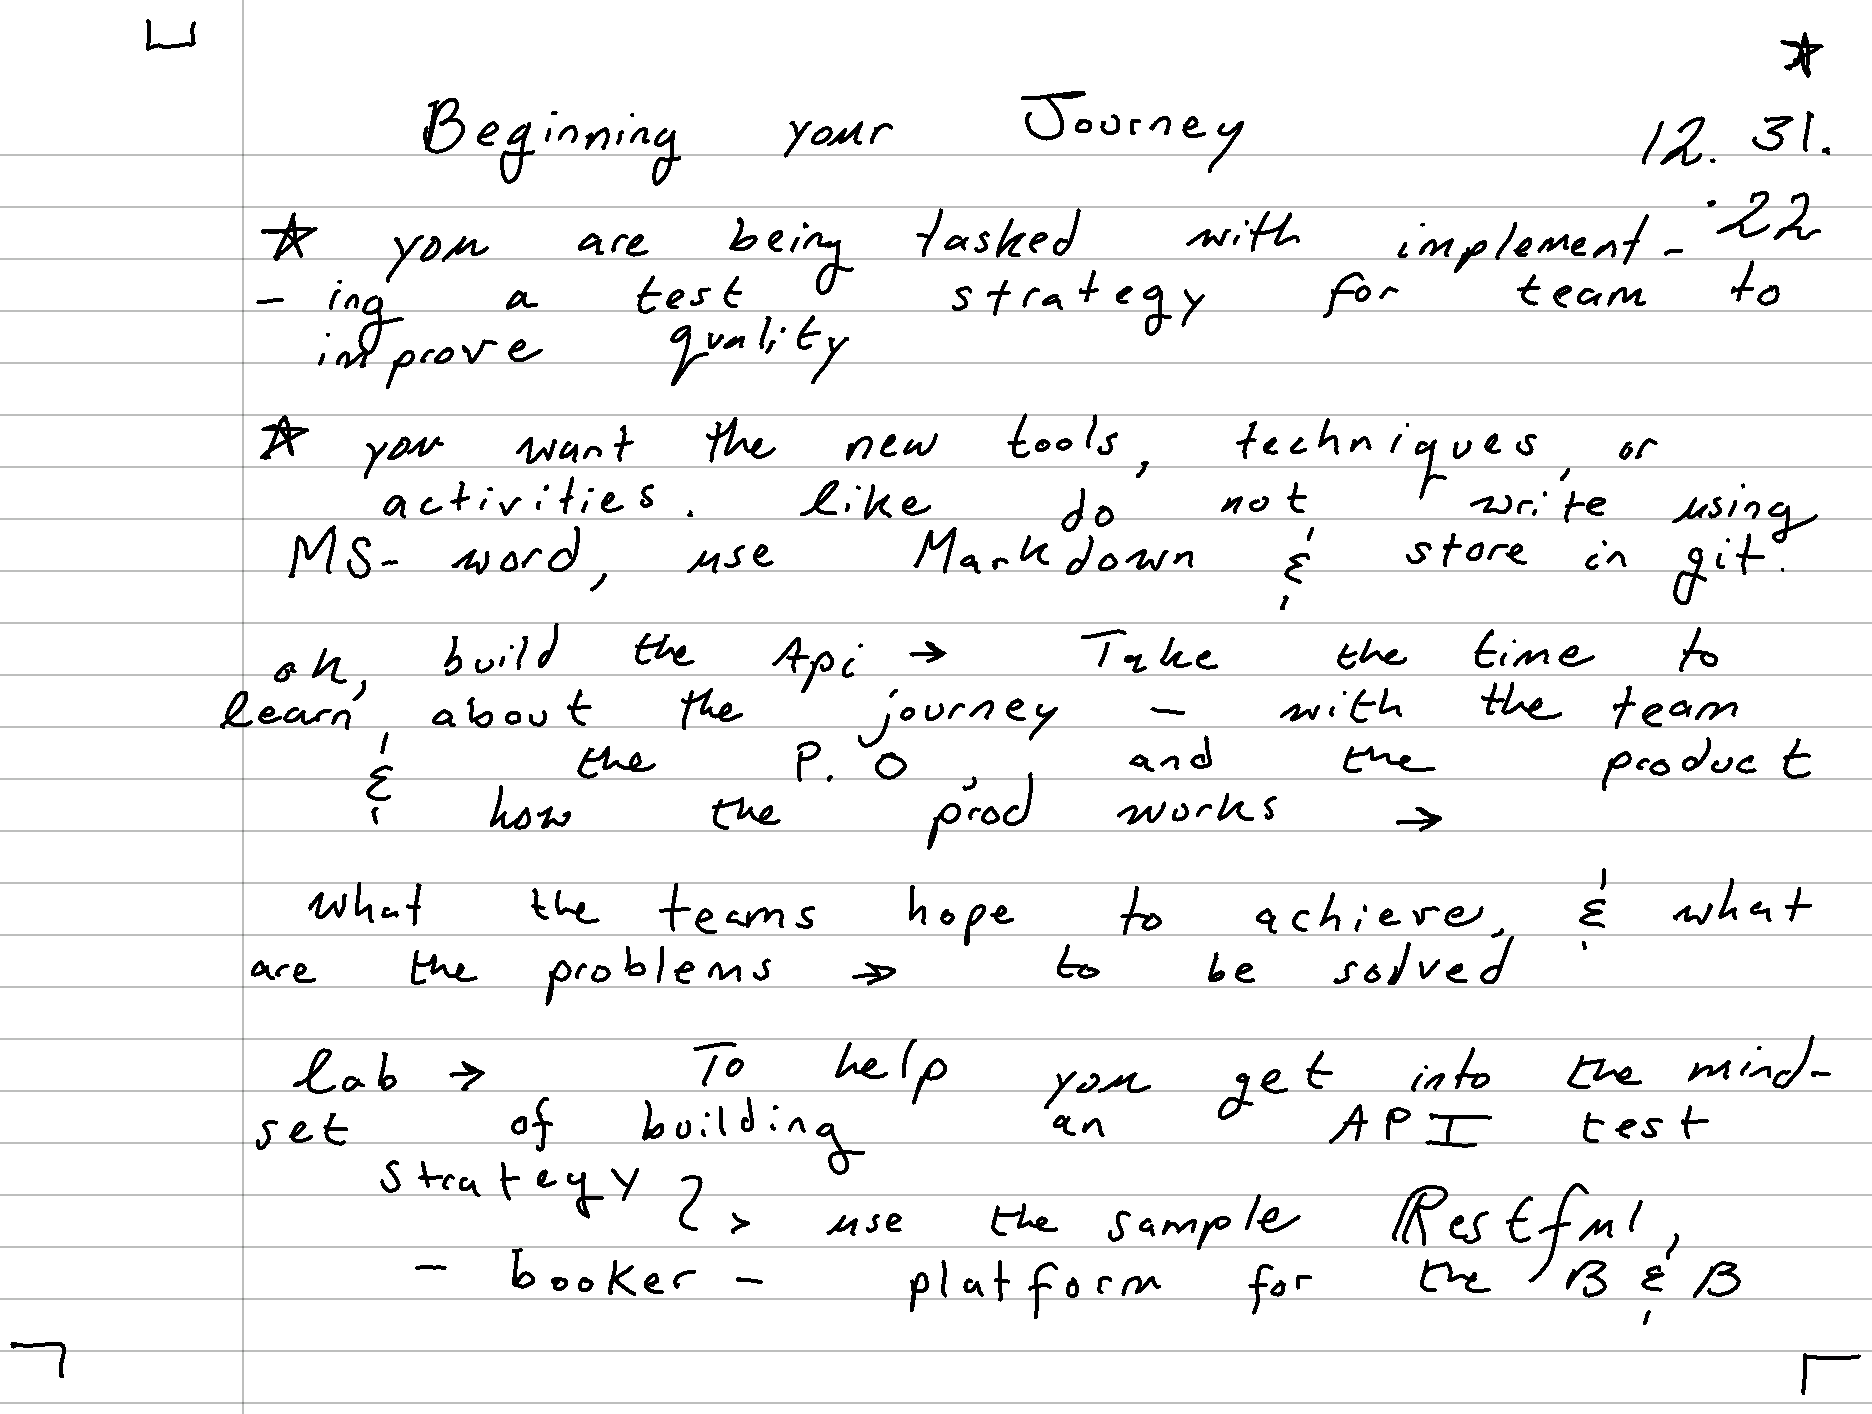 ★
Beginning your Journey 12. 31.
'22
★ you are being tasked with implement-
- ing a test strategy for team to
improve quality
★ you want the new tools, techniques, or
activities. like do not write using
MS- word, use Markdown & store in git.
ok, build the Api → Take the time to
learn about the journey - with the team
& the P.O, and the product
how the prod works →
what the teams hope to achieve, & what
are the problems → to be solved
lab → To help you get into the mind-
set of building an API test
strategy
> use the sample Restful,
- booker - platform for the B & B